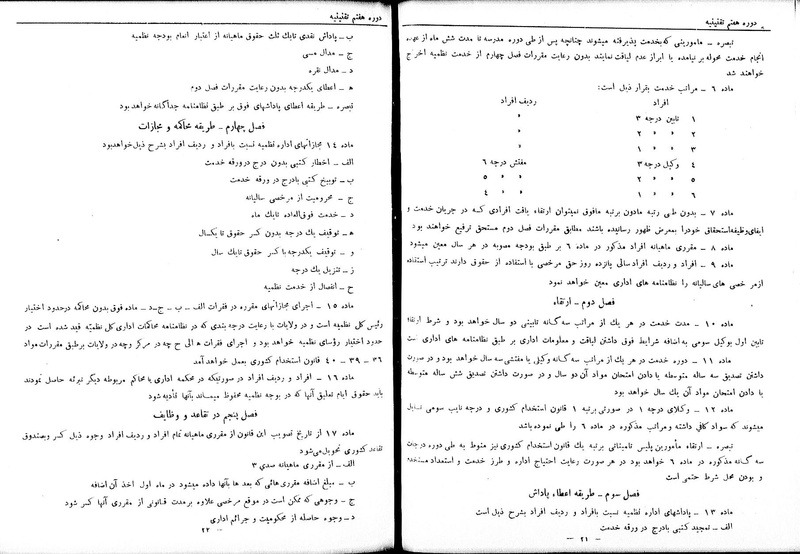 دوره هفتم تقنینیه
تبصره ــ مامورینی که بخدمت پذیرفته میشوند چنانچه پس از طی دوره مدرسه تا مدت شش ماه از عهده
انجام خدمت محوله برنیامده یا ابراز عدم لیاقت نمایند بدون رعایت مقررات فصل چهارم از خدمت نظمیه اخراج
خواهند شد
ماده ۶ ــ مراتب خدمت بقرار ذیل است:
افراد ردیف افراد
۱ تابین درجه ۳ »
۲ » » ۲ »
۳ » » ۱ »
۴ وکیل درجه ۳ مفتش درجه ۶
۵ » » ۲ » » ۵
۶ » » ۱ » » ۴
ماده ۷ ــ بدون طی رتبه مادون برتبه مافوق نمیتوان ارتقاء یافت افرادی که در جریان خدمت و
ایفای وظیفه استحقاق خود را بمعرض ظهور رسانیده باشند مطابق مقررات فصل دوم مستحق ترفیع خواهند بود
ماده ۸ ــ مقرری ماهیانه افراد مذکور در ماده ۶ بر طبق بودجه مصوبه در هر سال معین میشود
ماده ۹ ــ افراد و ردیف افراد سالی پانزده روز حق مرخصی با استفاده از حقوق دارند ترتیب استفاده
از مرخصی های سالیانه را نظامنامه های اداری معین خواهد نمود
فصل دوم ــ ارتقاء
ماده ۱۰ ــ مدت خدمت در هر یک از مراتب سه گانه تابینی دو سال خواهد بود و شرط ارتقاء
تابین اول بوکیل سومی به اضافه شرایط فوق داشتن لیاقت و معلومات اداری بر طبق نظامنامه های اداری است
ماده ۱۱ ــ دوره خدمت در هر یک از مراتب سه گانه وکیلی یا مفتشی سه سال خواهد بود و در صورت
داشتن تصدیق سه ساله متوسطه یا دادن امتحان مواد آن دو سال و در صورت داشتن تصدیق شش ساله متوسطه
یا دادن امتحان مواد آن یک سال خواهد بود
ماده ۱۲ ــ وکلای درجه ۱ در صورتی برتبه ۱ قانون استخدام کشوری و درجه نایب سومی نایل
میشوند که سواد کافی داشته و مراتب مذکوره در ماده ۶ را طی نموده باشد
تبصره ــ ارتقاء مأمورین پلیس تامیناتی برتبه یک قانون استخدام کشوری نیز منوط به طی دوره درجات
سه گانه مذکوره در ماده ۶ خواهد بود در هر صورت رعایت احتیاج اداره و طرز خدمت و استعداد مستخدم
و بودن محل شرط حتمی است
فصل سوم ــ طریقه اعطاء پاداش
ماده ۱۳ ــ پاداشهای اداره نظمیه نسبت بافراد و ردیف افراد بشرح ذیل است
الف ــ تمجید کتبی بادرج در ورقه خدمت
ــ ۲۱ ــ
دوره هفتم تقنینیه
ب ــ پاداش نقدی تا یک ثلث حقوق ماهیانه از اعتبار انعام بودجه نظمیه
ج ــ مدال مسی
د ــ مدال نقره
ه ــ اعطای یکدرجه بدون رعایت مقررات فصل دوم
تبصره ــ طریقه اعطای پاداشهای فوق بر طبق نظامنامه جداگانه خواهد بود
فصل چهارم ــ طریقه محاکمه و مجازات
ماده ۱۴ ــ مجازاتهای اداره نظمیه نسبت بافراد و ردیف افراد بشرح ذیل خواهد بود
الف ــ اخطار کتبی بدون درج در ورقه خدمت
ب ــ توبیخ کتبی بادرج در ورقه خدمت
ج ــ محرومیت از مرخصی سالیانه
د ــ خدمت فوق العاده تا یک ماه
ه ــ توقیف یک درجه بدون کسر حقوق تا یکسال
و ــ توقیف یکدرجه با کسر حقوق تا یک سال
ز ــ تنزیل یک درجه
ح ــ انفصال از خدمت نظمیه
ماده ۱۵ ــ اجرای مجازاتهای مقرره در فقرات الف ــ ب ــ ج ــ د ــ ماده فوق بدون محاکمه در حدود اختیار
رئیس کل نظمیه است و در ولایات با رعایت درجه بندی که در نظامنامه محاکمات اداری کل نظمیه قید شده است در
حدود اختیار رؤسای نظمیه خواهد بود و اجرای فقرات ه الی ح چه در مرکز و چه در ولایات بر طبق مقررات مواد
۳۶ ــ ۳۹ ــ ۴۰ قانون استخدام کشوری بعمل خواهد آمد
ماده ۱۶ ــ افراد و ردیف افراد در صورتیکه در محکمه اداری یا محاکم مربوطه دیگر تبرئه حاصل نمودند
باید حقوق ایام تعلیق آنها که در بودجه نظمیه محفوظ میماند بآنها تأدیه شود
فصل پنجم در تقاعد و وظایف
ماده ۱۷ از تاریخ تصویب این قانون از مقرری ماهیانه تمام افراد و ردیف افراد وجوه ذیل کسر و بصندوق
تقاعد کشوری تحویل می شود
الف ــ از مقرری ماهیانه صدی ۳
ب ــ مبلغ اضافه مقرری هائی که بعدها بآنها داده میشود در ماه اول اخذ آن اضافه
ج ــ وجوهی که ممکن است در موقع مرخصی علاوه بر مدت قانونی از مقرری آنها کسر شود
د ــ وجوه حاصله از محکومیت و جرائم اداری
ــ ۲۲ ــ